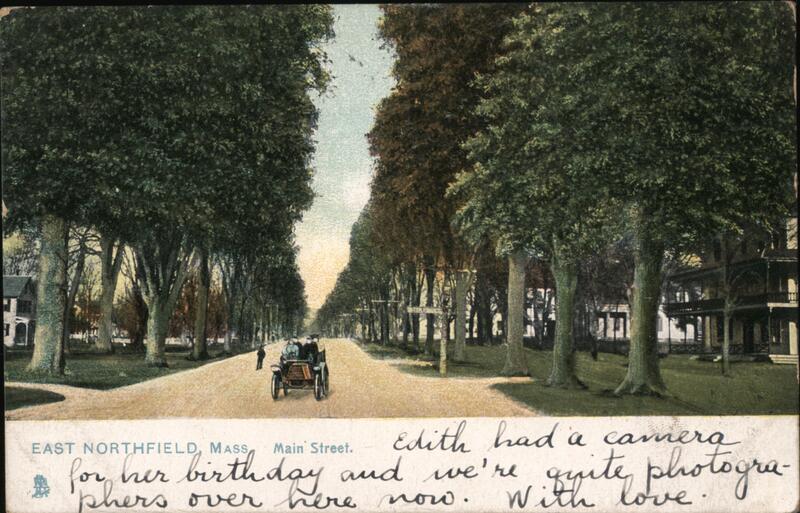 EAST NORTHFIELD, MASS. Main Street.
Edith had a camera
for her birthday and we're quite photogra-
phers over here now. With love.